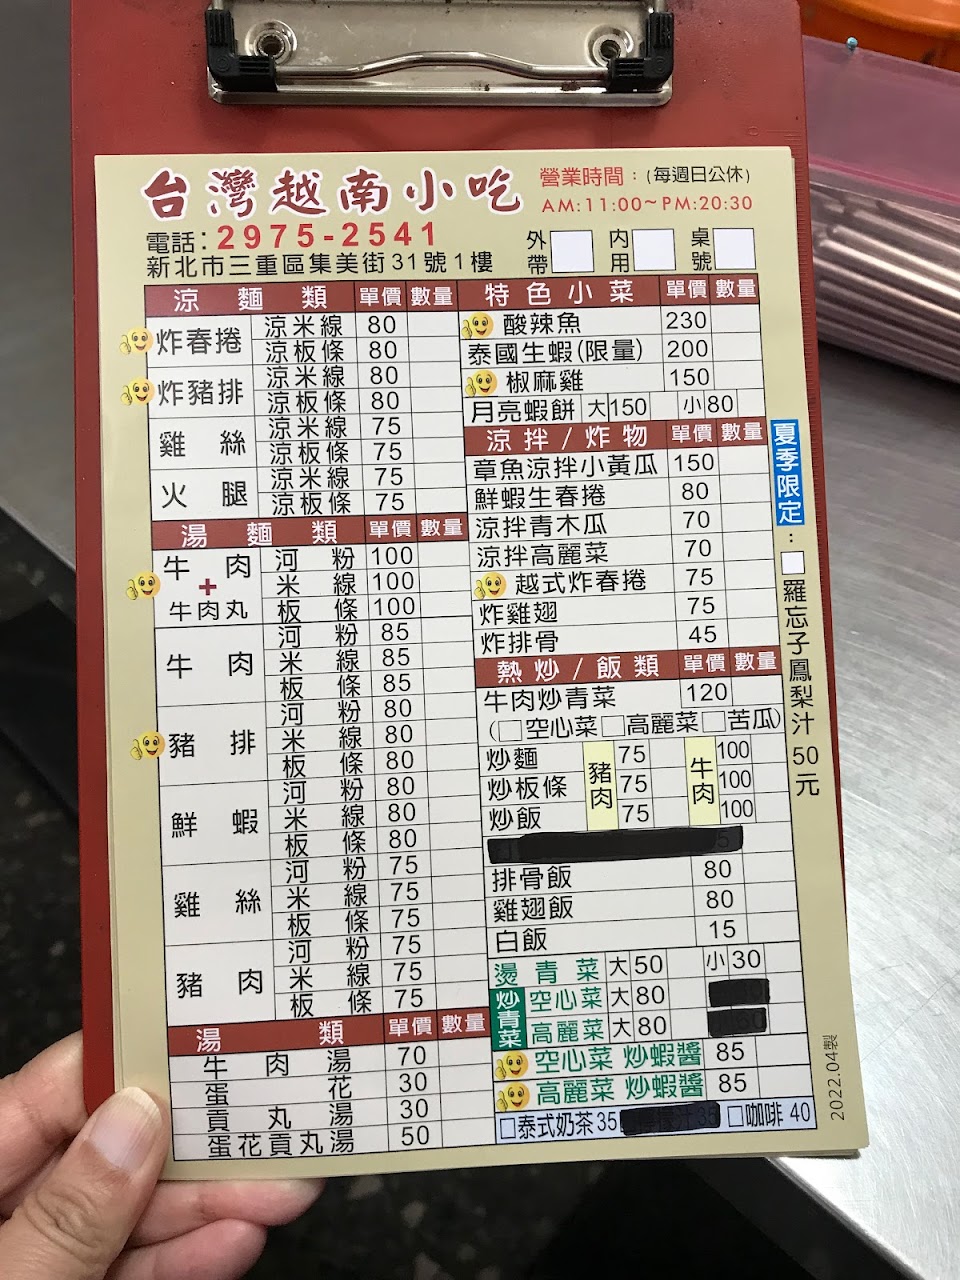 台灣越南小吃
營業時間：(每週日公休)
AM:11:00~PM:20:30
電話：2975-2541
新北市三重區集美街31號1樓
外帶 內用 桌號
涼麵類 單價 數量
炸春捲 涼米線 80
涼板條 80
炸豬排 涼米線 80
涼板條 80
雞絲 涼米線 75
涼板條 75
火腿 涼米線 75
涼板條 75
湯麵類 單價 數量
牛肉+牛肉丸 河粉 100
米線 100
板條 100
牛肉 河粉 85
米線 85
板條 85
豬排 河粉 80
米線 80
板條 80
鮮蝦 河粉 80
米線 80
板條 80
雞絲 河粉 75
米線 75
板條 75
豬肉 河粉 75
米線 75
板條 75
湯類 單價 數量
牛肉湯 70
蛋花 30
貢丸湯 30
蛋花貢丸湯 50
特色小菜 單價 數量
酸辣魚 230
泰國生蝦(限量) 200
椒麻雞 150
月亮蝦餅 大150 小80
涼拌/炸物 單價 數量
章魚涼拌小黃瓜 150
鮮蝦生春捲 80
涼拌青木瓜 70
涼拌高麗菜 70
越式炸春捲 75
炸雞翅 75
炸排骨 45
熱炒/飯類 單價 數量
牛肉炒青菜 120
(□空心菜□高麗菜□苦瓜)
炒麵 豬肉 75 牛肉 100
炒板條 75 100
炒飯 75 100
排骨飯 80
雞翅飯 80
白飯 15
燙青菜 大50 小30
炒青菜 空心菜 大80
高麗菜 大80
空心菜 炒蝦醬 85
高麗菜 炒蝦醬 85
□泰式奶茶35 □咖啡 40
夏季限定：□羅忘子鳳梨汁50元
2022.04製